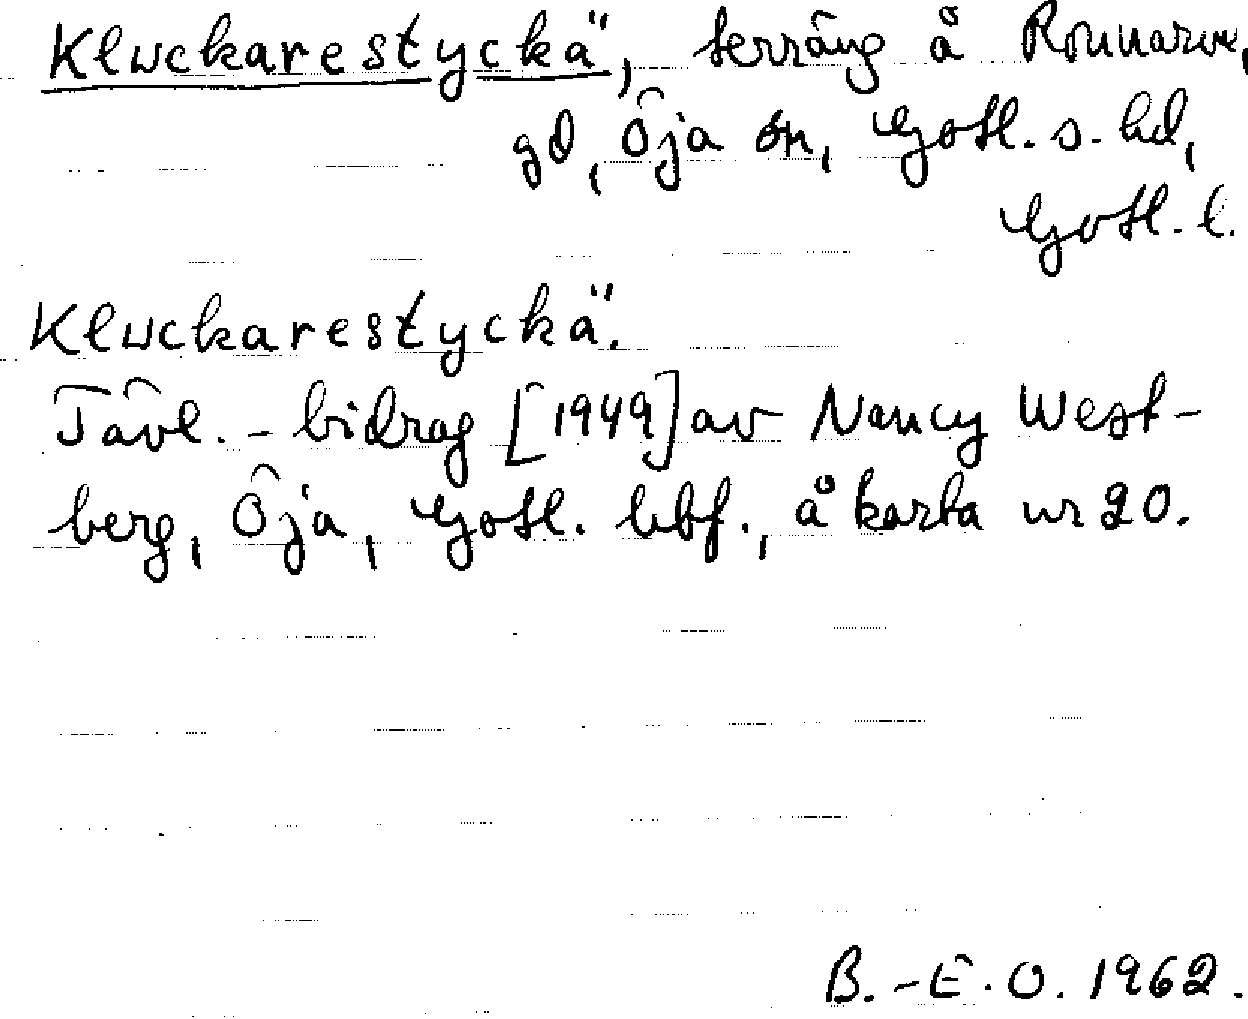 Kluckarestyckä, terräng å Ronnarve,
gd, Öja sn, Gotl. s. hd,
Gotl. l.
Kluckarestyckä.
Tävl.-bidrag [1949] av Nancy West-
berg, Öja, Gotl. hbf., å karta nr 20.
B.-E.O. 1962.